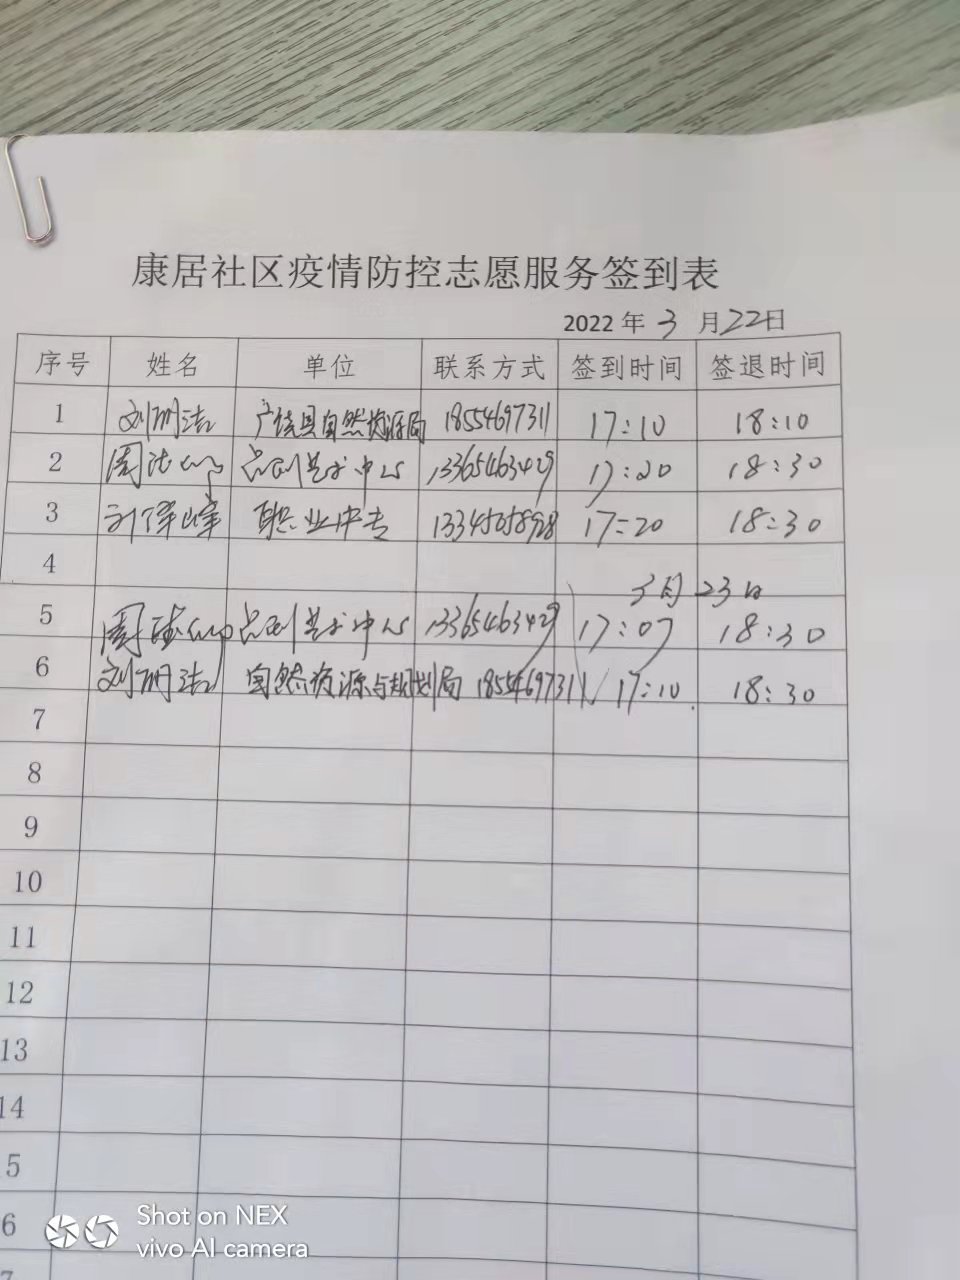 康居社区疫情防控志愿服务签到表
2022 年 3 月 22日
序号 姓名 单位 联系方式 签到时间 签退时间
1 刘明法 广饶县自然资源局 18554697311 17:10 18:10
2 周 中心 13365463429 17:20 18:30
3 峰 职业中专 13345058928 17:20 18:30
4
3月23日
5 周 中心 13365463429 17:07 18:30
6 刘明法 自然资源与规划局 18554697311 17:10 18:30
7
8
9
10
11
12
13
14
5
6
7
Shot on NEX
vivo AI camera